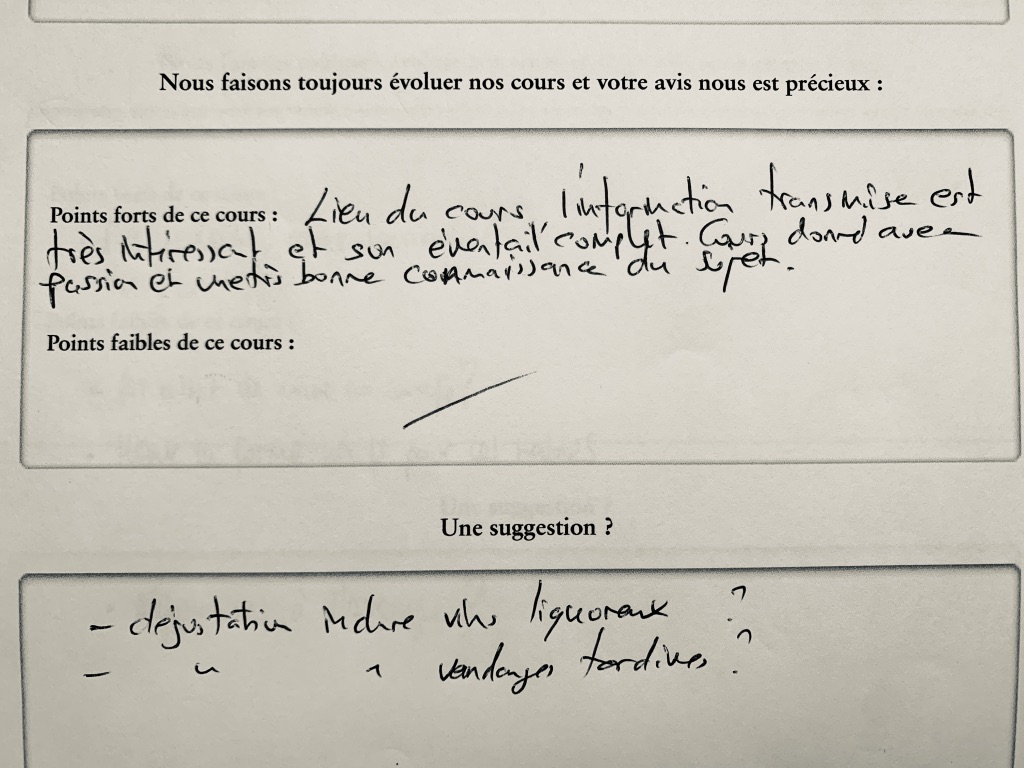 Nous faisons toujours évoluer nos cours et votre avis nous est précieux :
Points forts de ce cours : Lieu du cours, l'information transmise est
très intéressat et son éventail complet. Cours donné avec
passion et une très bonne connaissance du sujet.
Points faibles de ce cours :
Une suggestion ?
- dégustation vins liquoreux ?
- " " vendanges tardives ?